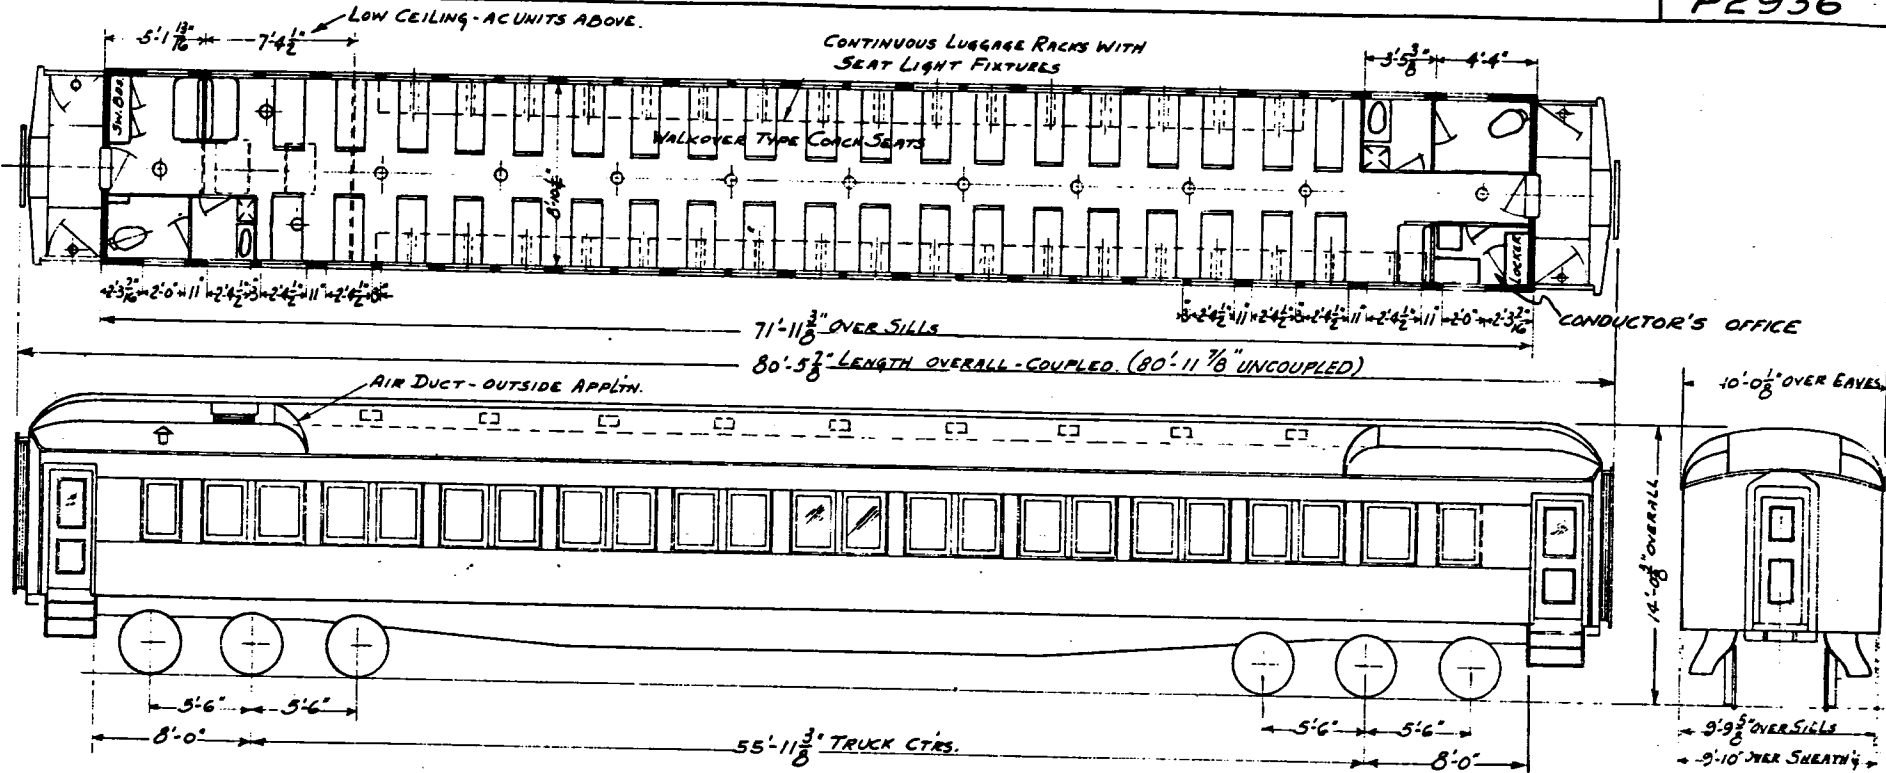 P2936
LOW CEILING - AC UNITS ABOVE.
5'-1 13/16" 7'-4 1/2"
CONTINUOUS LUGGAGE RACKS WITH
SEAT LIGHT FIXTURES
3'-5 3/8" 4'-4"
SW. BOX.
WALKOVER TYPE COACH SEATS
8'-10 1/4"
LOCKER
2'-0" 11" 2'-4 1/2" 3" 2'-4 1/2" 11" 2'-4 1/2" 3"
3" 2'-4 1/2" 11" 2'-4 1/2" 3" 2'-4 1/2" 11" 2'-4 1/2" 11" 2'-0"
CONDUCTOR'S OFFICE
71'-11 3/8" OVER SILLS
80'-5 7/8" LENGTH OVERALL - COUPLED. (80'-11 7/8" UNCOUPLED)
AIR DUCT - OUTSIDE APPLT'N.
10'-0 1/8" OVER EAVES
14'-0 3/8" OVERALL
5'-6" 5'-6"
5'-6" 5'-6"
8'-0"
55'-11 3/8" TRUCK CTRS.
8'-0"
9'-9 5/8" OVER SILLS
9'-10" OVER SHEATH'G